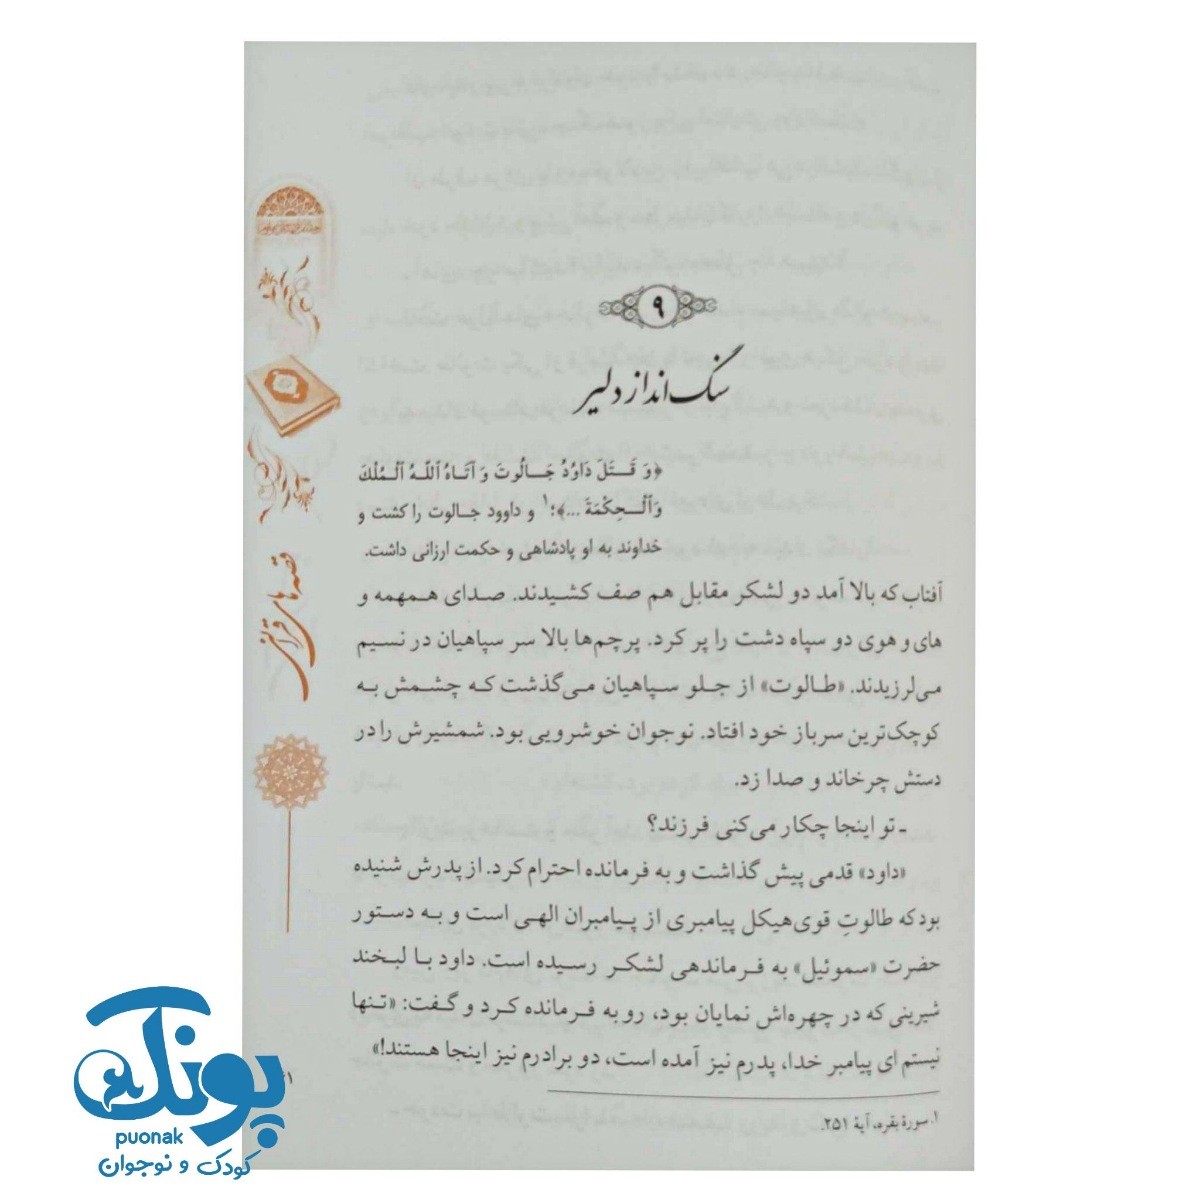 ۹
سنگ‌انداز دلیر
﴿وَ قَـتَلَ دَاوُدُ جَـالُوتَ وَ آتَاهُ ٱللهُ ٱلْـمُلْكَ
وَٱلْـحِكْمَةَ ...﴾؛۱ و داوود جالوت را کشت و
خداوند به او پادشاهی و حکمت ارزانی داشت.
آفتاب که بالا آمد دو لشکر مقابل هم صف کشیدند. صدای همهمه و
های و هوی دو سپاه دشت را پر کرد. پرچم‌ها بالا سر سپاهیان در نسیم
می‌لرزیدند. «طالوت» از جلو سپاهیان می‌گذشت که چشمش به
کوچک‌ترین سرباز خود افتاد. نوجوان خوشرویی بود. شمشیرش را در
دستش چرخاند و صدا زد.
ـ تو اینجا چکار می‌کنی فرزند؟
«داود» قدمی پیش گذاشت و به فرمانده احترام کرد. از پدرش شنیده
بود که طالوتِ قوی‌هیکل پیامبری از پیامبران الهی است و به دستور
حضرت «سموئیل» به فرماندهی لشکر رسیده است. داود با لبخند
شیرینی که در چهره‌اش نمایان بود، رو به فرمانده کرد و گفت: «تنها
نیستم ای پیامبر خدا، پدرم نیز آمده است، دو برادرم نیز اینجا هستند!»
۱. سورهٔ بقره، آیهٔ ۲۵۱.
قصه‌های قرآنی
پونک
puonak
کودک و نوجوان